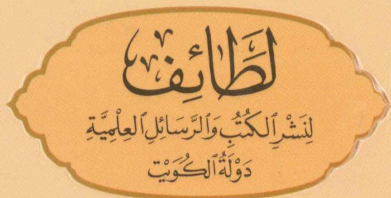 لَطَائِف
لِنَشْرِ ٱلكُتُبِ وَٱلرَّسَائِلِ ٱلعِلْمِيَّةِ
دَوْلَةُ ٱلكُوَيْت